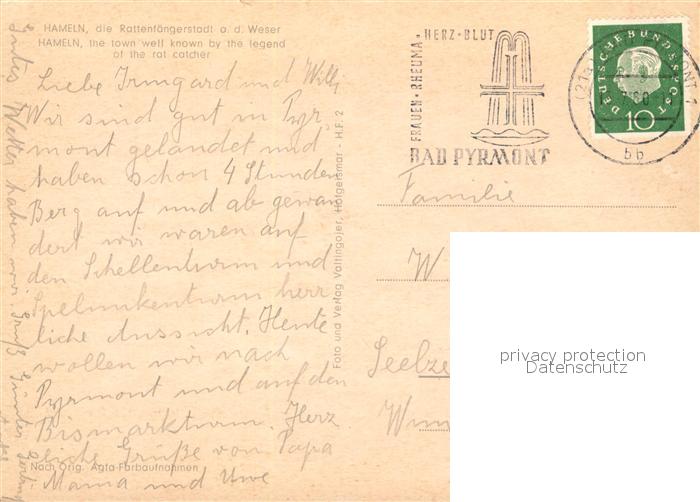 HAMELN, die Rattenfängerstadt a. d. Weser
HAMELN, the town well known by the legend
of the rat catcher
Liebe Irmgard und Willi
Wir sind gut in Pyr
mont gelandet und
haben schon 4 Stunden
Berg auf und ab gewan
dert wir waren auf
den Schellenturm und
Spelunkenturm herr
liche Aussicht. Heute
wollen wir nach
Pyrmont und auf den
Bismarkturm. Herz
liche Grüße von Papa
Mama und Uwe
Nach Orig. Agfa-Farbaufnahmen
Gutes Wetter haben wir Gruß Günter
Foto und Verlag Valtingojer, Holgersmar - H.F. 2
FRAUEN · RHEUMA · HERZ · BLUT
BAD PYRMONT
(21a)
bb
DEUTSCHE BUNDESPOST
10
Familie
W
Seelze
privacy protection
Datenschutz